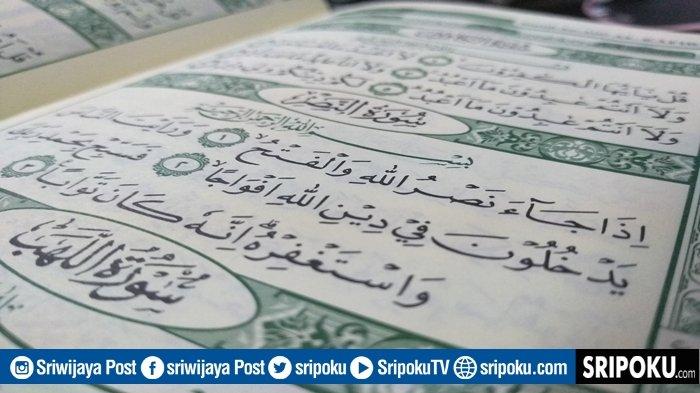 قُلْ يٰٓاَيُّهَا الْكٰفِرُوْنَ
وَلَآ اَنْتُمْ عٰبِدُوْنَ مَآ اَعْبُدُ
وَلَآ اَنْتُمْ عٰبِدُوْنَ مَآ اَعْبُدُ
سُوْرَةُ النَّصْرِ
بِسْمِ اللّٰهِ الرَّحْمٰنِ الرَّحِيْمِ
اِذَا جَآءَ نَصْرُ اللّٰهِ وَالْفَتْحُۙ ١ وَرَاَيْتَ النَّاسَ
يَدْخُلُوْنَ فِيْ دِيْنِ اللّٰهِ اَفْوَاجًاۙ ٢ فَسَبِّحْ بِحَمْدِ رَبِّكَ
وَاسْتَغْفِرْهُۗ اِنَّهٗ كَانَ تَوَّابًا ٣
سُوْرَةُ اللَّهَبِ
Sriwijaya Post sriwijaya Post sripoku SripokuTV sripoku.com SRIPOKU.com